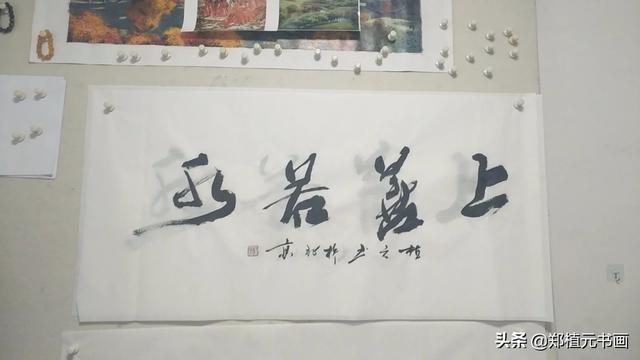 上善若水
植元书於北京
头条 @郑植元书画